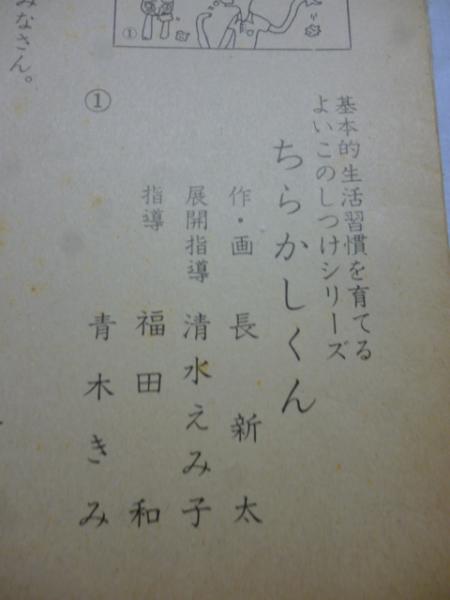 基本的生活習慣を育てる
よいこのしつけシリーズ
ちらかしくん
作・画 長 新太
展開指導 清水えみ子
指導 福田 和
青木きみ
①
①
みなさん。